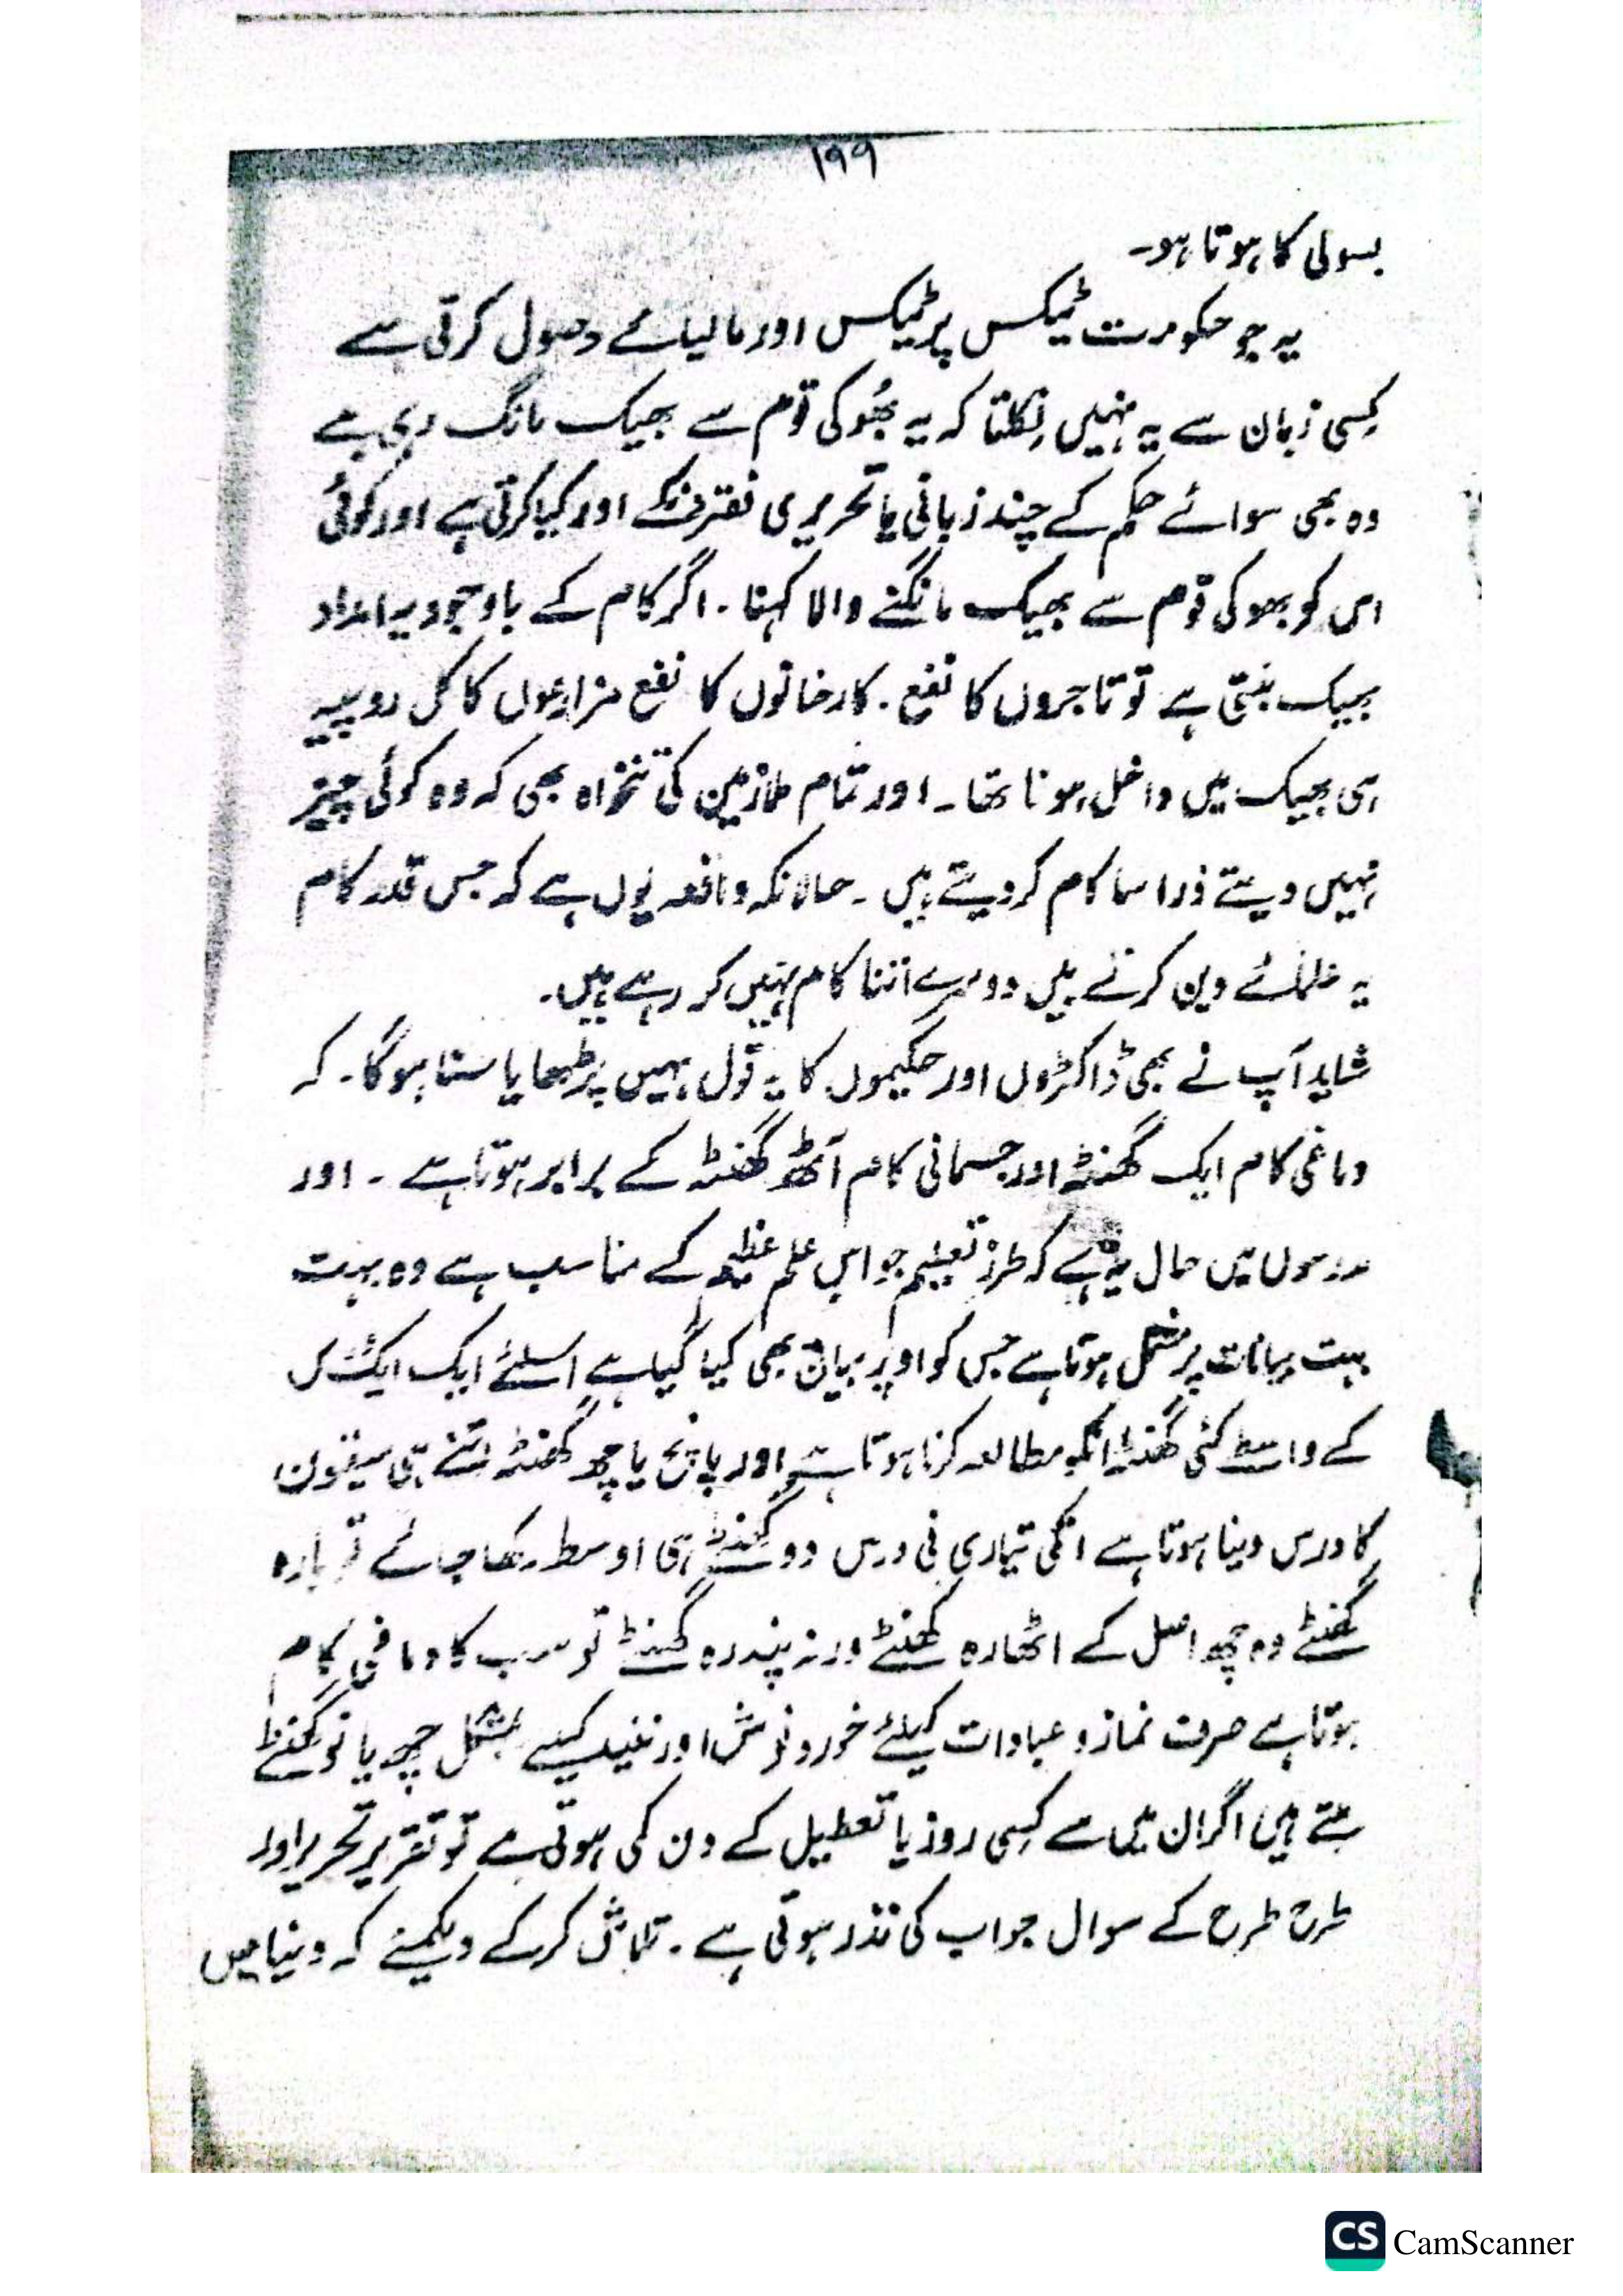 ۱۹۹
بسولی کا ہوتا ہو۔
یہ جو حکومت ٹیکس پر ٹیکس اور مالیانے وصول کرتی ہے
کسی زبان سے یہ نہیں نکلتا کہ یہ بھوکی قوم سے بھیک مانگ رہی ہے
وہ بھی سوائے حکم کے چند زبانی یا تحریری فقروں کے اور کیا کرتی ہے اور کوئی
اس کو بھوکی قوم سے بھیک مانگنے والا کہنا ۔ اگر کام کے باوجود یہ امداد
بھیک بنتی ہے تو تاجروں کا نفع ۔ کارخانوں کا نفع مزارعوں کا کل روپیہ
ہی بھیک میں داخل ہونا تھا ۔ اور تمام ملازمین کی تنخواہ بھی کہ وہ کوئی چیز
نہیں دیتے ذرا سا کام کر دیتے ہیں ۔ حالانکہ واقعہ یوں ہے کہ جس قدر کام
یہ علمائے دین کرتے ہیں دوسرے اتنا کام نہیں کر رہے ہیں ۔
شاید آپ نے بھی ڈاکٹروں اور حکیموں کا یہ قول کہیں پڑھا یا سنا ہوگا ۔ کہ
دماغی کام ایک گھنٹہ اور جسمانی کام آٹھ گھنٹہ کے برابر ہوتا ہے ۔ اور
مدرسوں میں حال یہ ہے کہ طرز تعلیم جو اس علم عظیم کے مناسب ہے وہ بہت
بہت بیانات پر مشتمل ہوتا ہے جس کو اوپر بیان بھی کیا گیا ہے اسلئے ایک ایک
کے واسطے کئی گھنٹہ مطالعہ کرنا ہوتا ہے اور پانچ یا چھ گھنٹہ اتنے ہی سبقوں
کا درس دینا ہوتا ہے انکی تیاری فی درس دو گھنٹے ہی اوسط رکھا جائے تو بارہ
گھنٹے وہ چھ اصل کے اٹھارہ گھنٹے ورنہ پندرہ گھنٹے تو سب کا دماغی کام
ہوتا ہے صرف نماز و عبادات کیلئے خورد و نوش اور نیند کیلئے بمشکل چھ یا نو گھنٹے
بچتے ہیں اگر ان میں سے کسی روز یا تعطیل کے دن کمی ہوتی ہے تو تقریر تحریر اور
طرح طرح کے سوال جواب کی نذر ہوتی ہے ۔ تلاش کر کے دیکھئے کہ دنیا میں
CS CamScanner